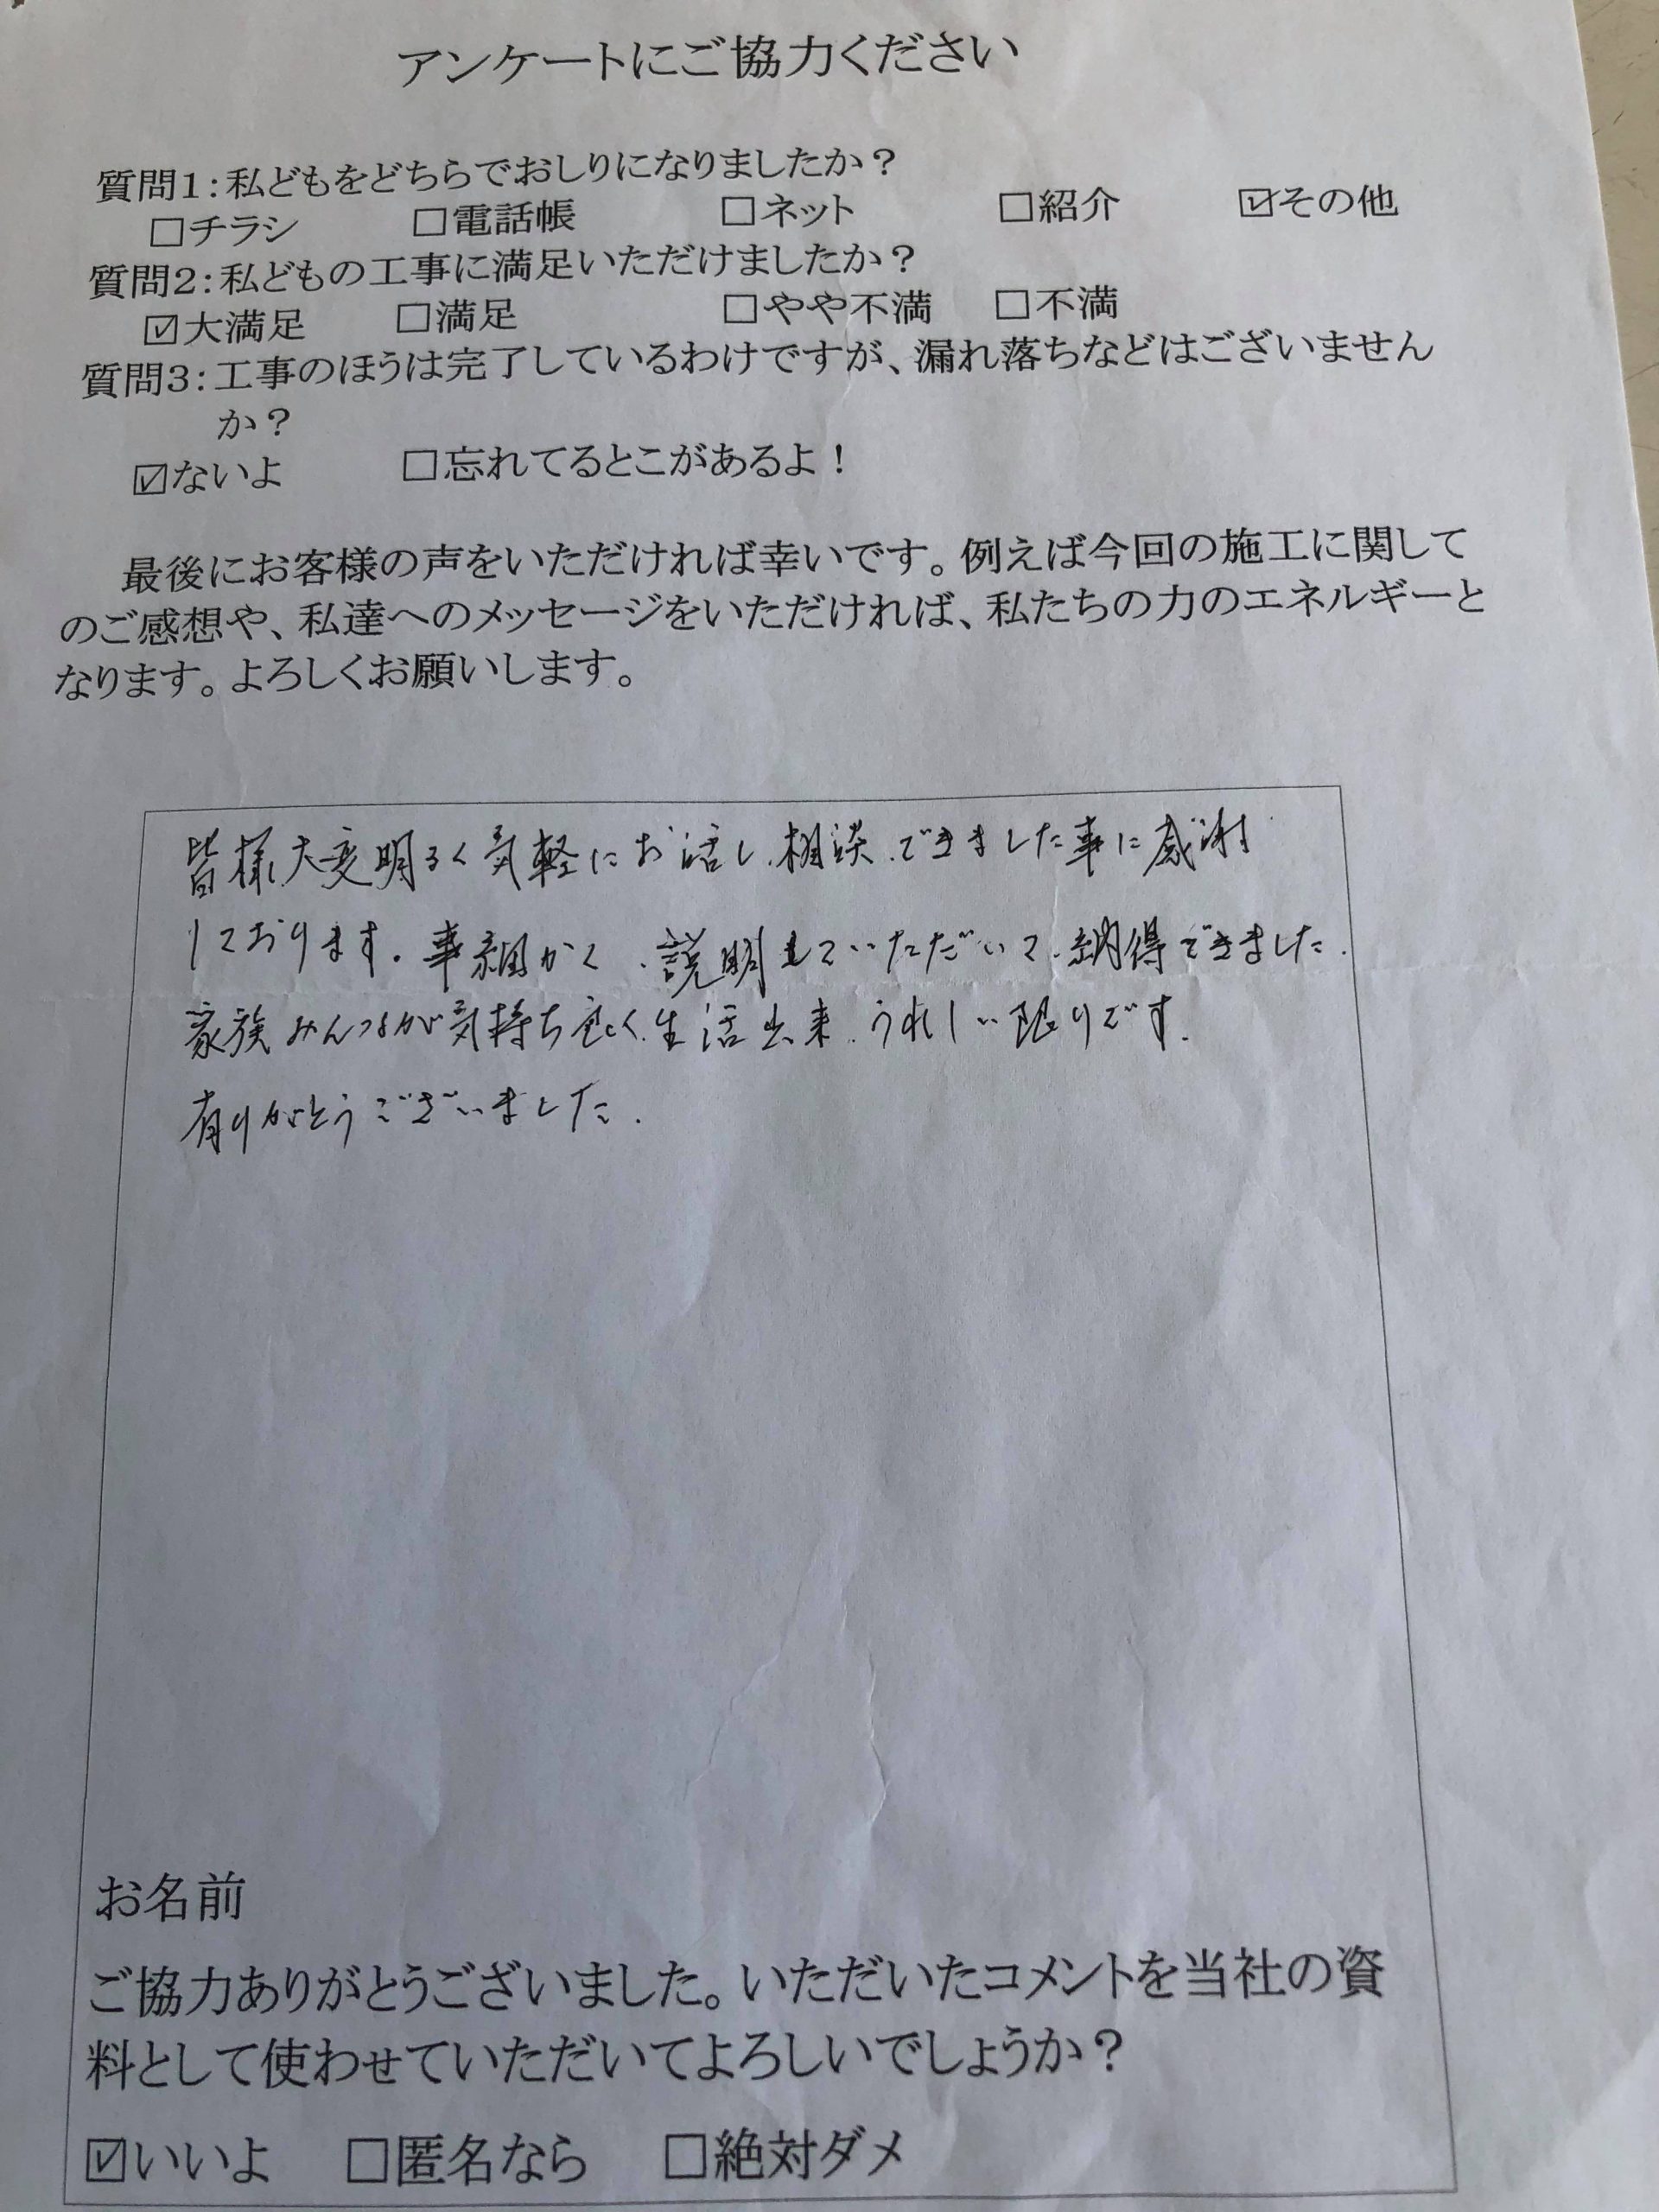 アンケートにご協力ください
質問1：私どもをどちらでおしりになりましたか？
□チラシ □電話帳 □ネット □紹介 ☑その他
質問2：私どもの工事に満足いただけましたか？
☑大満足 □満足 □やや不満 □不満
質問3：工事のほうは完了しているわけですが、漏れ落ちなどはございません
か？
☑ないよ □忘れてるとこがあるよ！
最後にお客様の声をいただければ幸いです。例えば今回の施工に関して
のご感想や、私達へのメッセージをいただければ、私たちの力のエネルギーと
なります。よろしくお願いします。
皆様、大変明るく気軽にお話し、相談、できました事に感謝
しております。事細かく、説明をしていただいて、納得できました。
家族みんなが気持ち良く、生活出来、うれしい限りです。
有りがとうございました。
お名前
ご協力ありがとうございました。いただいたコメントを当社の資
料として使わせていただいてよろしいでしょうか？
☑いいよ □匿名なら □絶対ダメ